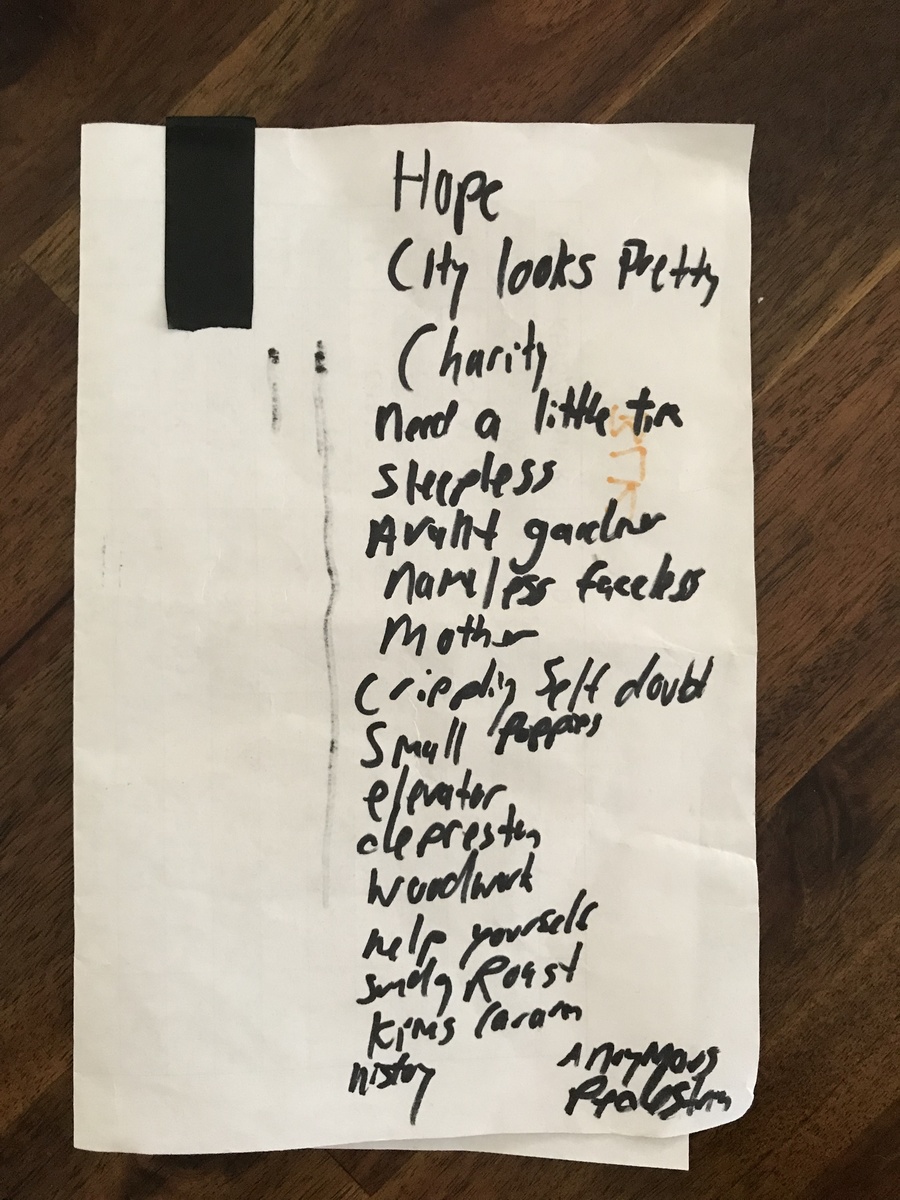 Hope
City looks Pretty
Charity
Need a little time
Sleepless
Avant gardner
Nameless faceless
Mother
Crippling Self doubt
Small Poppies
elevator
depreston
Woodwork
help yourself
Sundy Roast
Kims Caravan
history
Anonymous